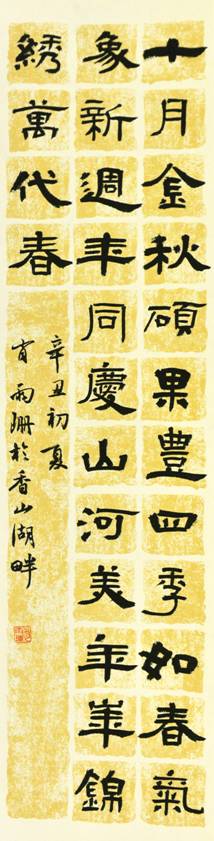 十月金秋碩果豊四季如春氣
象新週年同慶山河美年年錦
綉萬代春
辛丑初夏
肖雨珊於香山湖畔